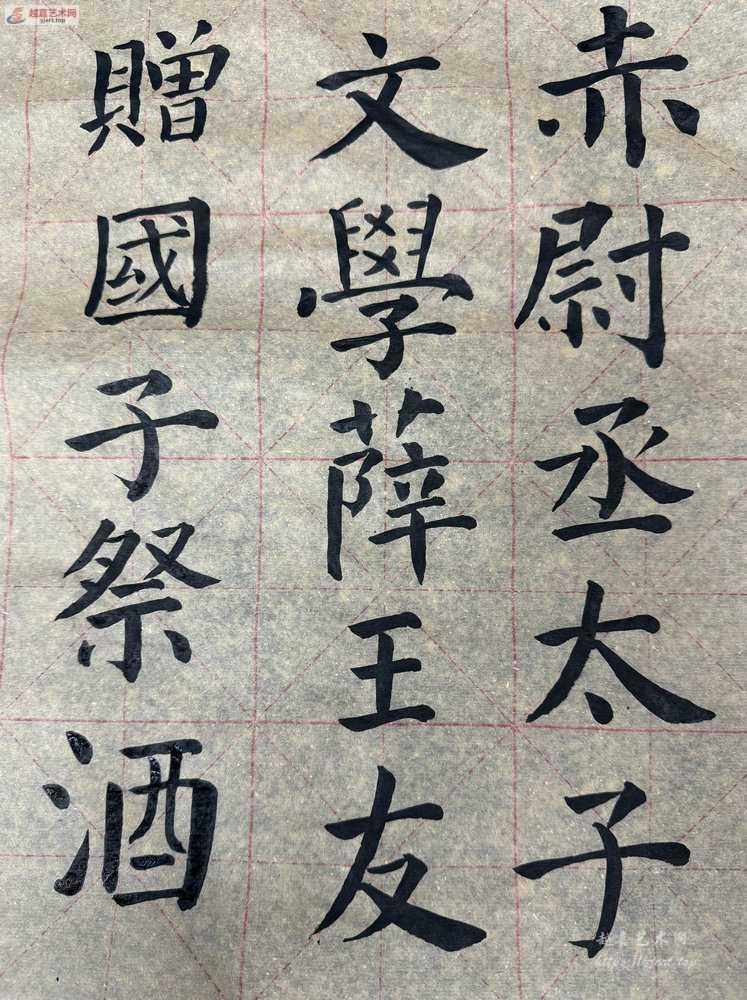 越嘉艺术网
yjart.top
赤尉丞太子
文學薛王友
贈國子祭酒
越嘉艺术网
https://yjart.top